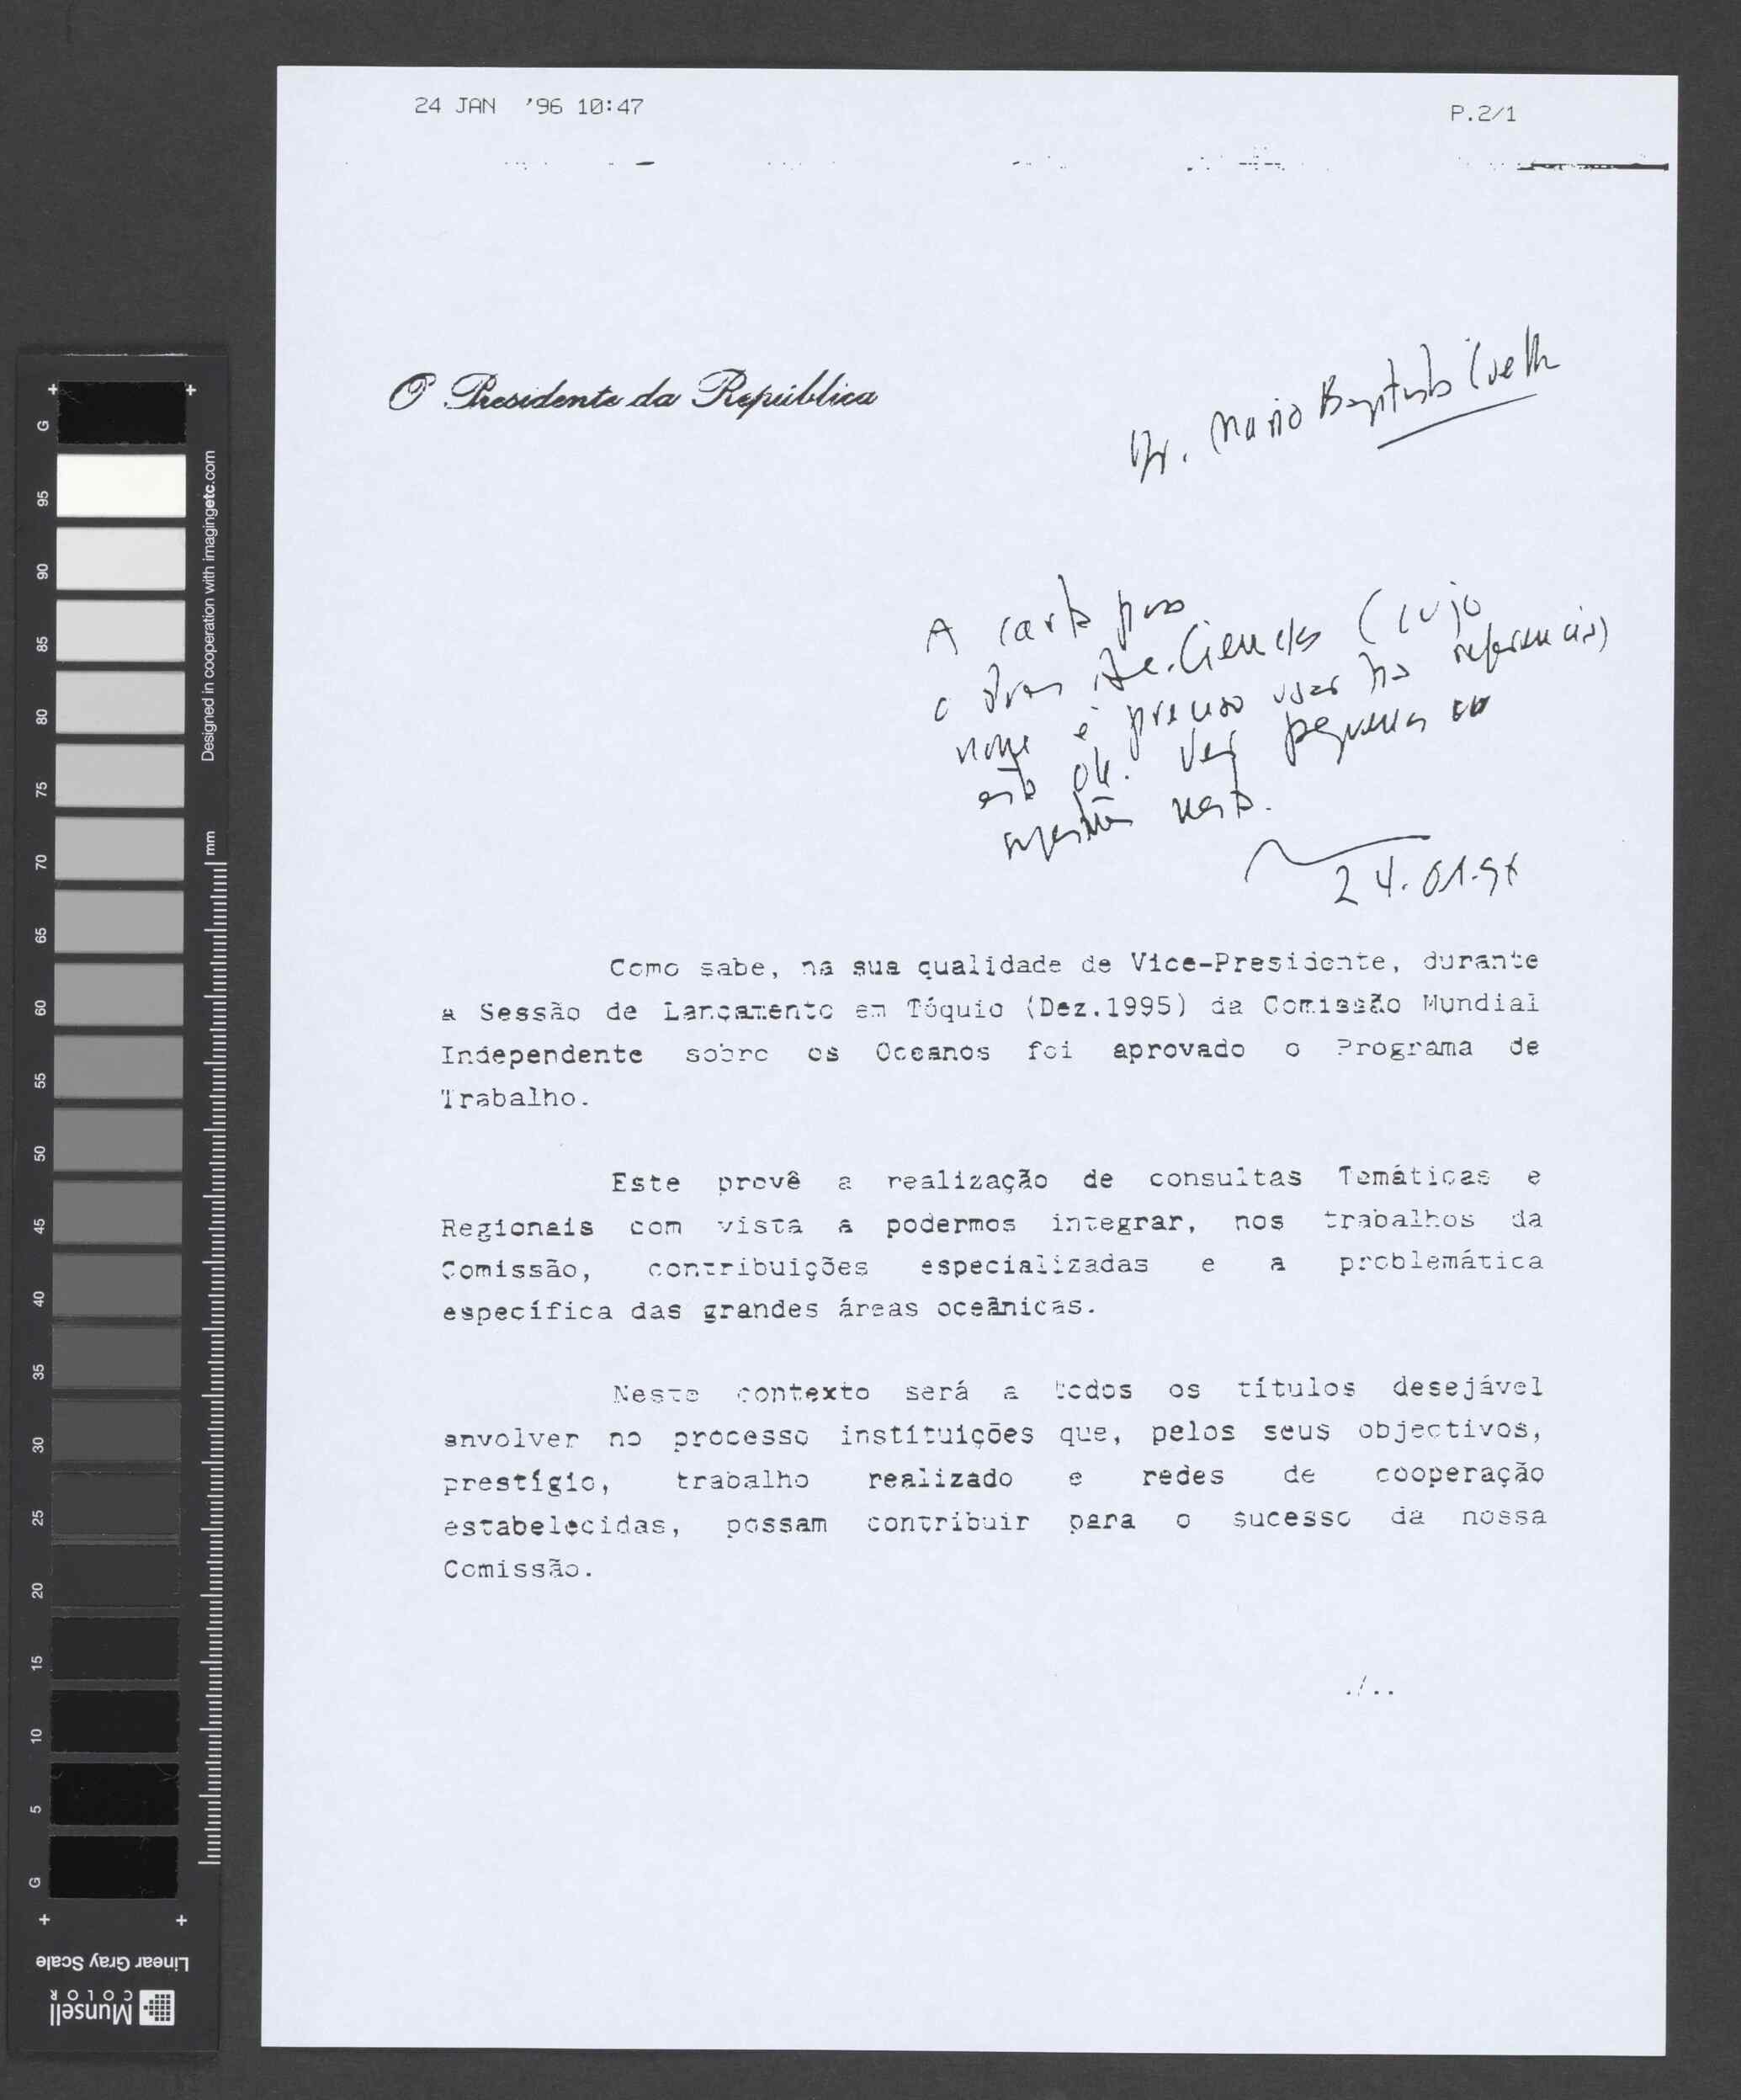 24 JAN '96 10:47
P.2/1
O Presidente da República
Dr. Mario Baptista
A carta para
o Ac. Ciencias (cujo
nome é preciso usar na referencia)
está ok. Ver pequena
sugestão nesta.
24.01.96
Como sabe, na sua qualidade de Vice-Presidente, durante
a Sessão de Lançamento em Tóquio (Dez.1995) da Comissão Mundial
Independente sobre os Oceanos foi aprovado o Programa de
Trabalho.
Este prevê a realização de consultas Temáticas e
Regionais com vista a podermos integrar, nos trabalhos da
Comissão, contribuições especializadas e a problemática
específica das grandes áreas oceânicas.
Neste contexto será a todos os títulos desejável
envolver no processo instituições que, pelos seus objectivos,
prestígio, trabalho realizado e redes de cooperação
estabelecidas, possam contribuir para o sucesso da nossa
Comissão.
./..
G
95
90
85
80
75
70
65
60
55
50
45
40
35
30
25
20
15
10
5
G
Designed in cooperation with imagingetc.com
mm
Linear Gray Scale
Munsell
COLOR